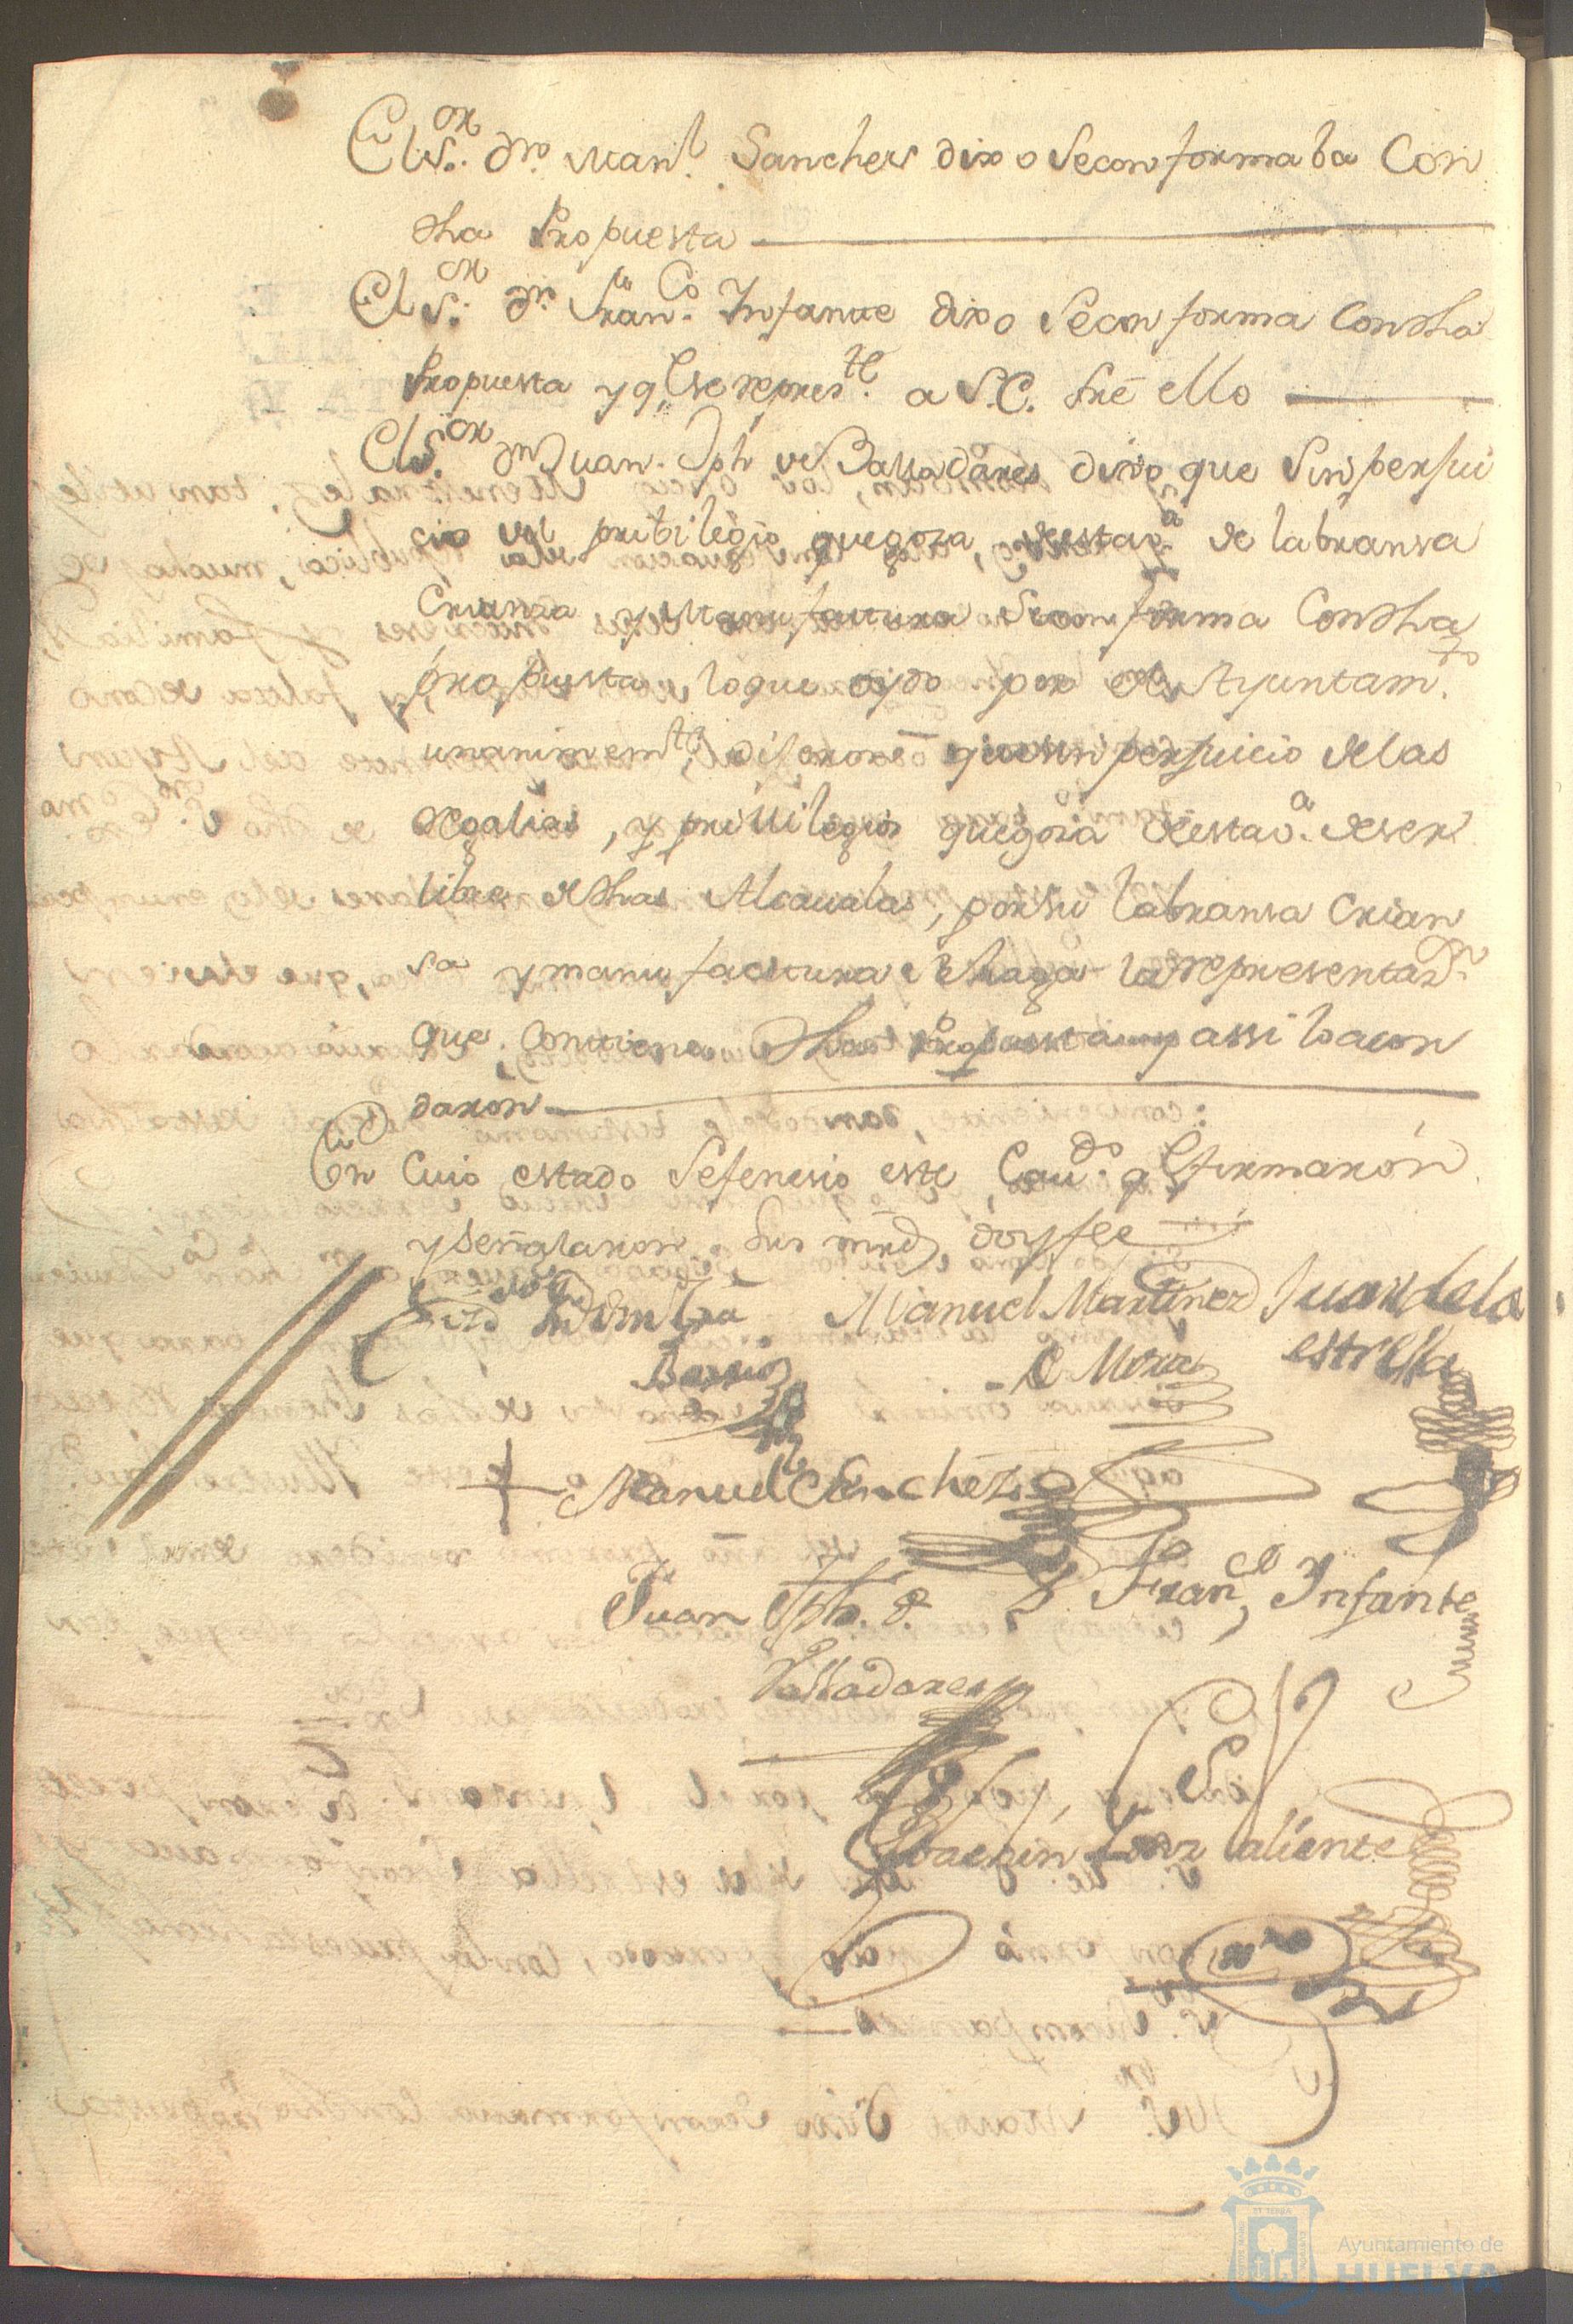 El S.or Dn. Man.l Sanches dixo Seconformaba Con
dha Propuesta
El S.or Dn. Fran.co Infante dixo Seconforma Condha
Propuesta y q.e se repres.te a S.E. sre ello
El S.or Dn Juan Jph de Balladares dixo que Sin perjui
cio del pribilegio que goza, de esta v.a de labransa
Crianza, y Manufactura Seconforma Condha
propuesta, lo que oydo por el Ayuntam.to
unanimem.te dijeron que sin perjuicio de las
regalias, y privilegios que goza de esta v.a de ser
libre de dhas Alcavalas, por su labransa Crian
sa y manufactura se haga la representaz.n
que Conviene dha Propuesta y assi lo acor
daron
En Cuio estado Sefenesio este Cav.do q.e firmaron
y señalaron Sus mrds, doy fee
Barrio
Manuel Martinez
Mora
Juan de la
estrella
Manuel Sanchez
Juan Jph. d
Valladares
Fran.co Infante
Joachin valiente
Ayuntamiento de
HUELVA